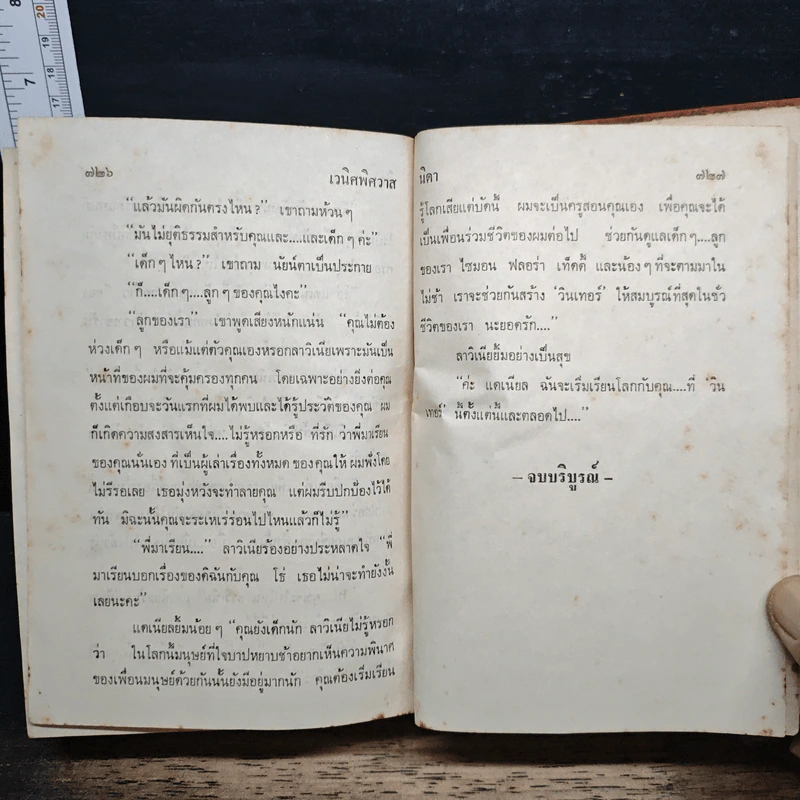 8
7
20
19
18
17
๗๒๖
เวนิศพิศวาส
"แล้วมันผิดกันตรงไหน?" เขาถามห้วนๆ
"มันไม่ยุติธรรมสำหรับคุณและ....และเด็กๆ ค่ะ"
"เด็กๆ ไหน?" เขาถาม นัยน์ตาเป็นประกาย
"ก็....เด็กๆ....ลูกๆ ของคุณไงคะ"
"ลูกของเรา" เขาพูดเสียงหนักแน่น "คุณไม่ต้อง
ห่วงเด็กๆ หรือแม้แต่ตัวคุณเองหรอกลาวิเนียเพราะมันเป็น
หน้าที่ของผมที่จะคุ้มครองทุกคน โดยเฉพาะอย่างยิ่งต่อคุณ
ตั้งแต่เกือบจะวันแรกที่ผมได้พบและได้รู้ประวัติของคุณ ผม
ก็เกิดความสงสารเห็นใจ....ไม่รู้หรอกหรือ ที่รัก ว่าพี่มาเรียน
ของคุณนั่นเอง ที่เป็นผู้เล่าเรื่องทั้งหมด ของคุณให้ ผมฟังโดย
ไม่รีรอเลย เธอมุ่งหวังจะทำลายคุณ แต่ผมรีบปกป้องไว้ได้
ทัน มิฉะนั้นคุณจะระเหเร่ร่อนไปไหนแล้วก็ไม่รู้"
"พี่มาเรียน...." ลาวิเนียร้องอย่างประหลาดใจ "พี่
มาเรียนบอกเรื่องของดิฉันกับคุณ โธ่ เธอไม่น่าจะทำยังงั้น
เลยนะคะ"
แดเนียลยิ้มน้อยๆ "คุณยังเด็กนัก ลาวิเนียไม่รู้หรอก
ว่า ในโลกนี้มนุษย์ที่ใจบาปหยาบช้าอยากเห็นความพินาศ
ของเพื่อนมนุษย์ด้วยกันนั้นยังมีอยู่มากนัก คุณต้องเริ่มเรียน
นิดา
๗๒๗
รู้โลกเสียแต่บัดนี้ ผมจะเป็นครูสอนคุณเอง เพื่อคุณจะได้
เป็นเพื่อนร่วมชีวิตของผมต่อไป ช่วยกันดูแลเด็กๆ....ลูก
ของเรา ไซมอน ฟลอร่า เท็ดดี้ และน้องๆ ที่จะตามมาใน
ไม่ช้า เราจะช่วยกันสร้าง 'วินเทอร์' ให้สมบูรณ์ที่สุดในชั่ว
ชีวิตของเรา นะยอดรัก...."
ลาวิเนียยิ้มอย่างเป็นสุข
"ค่ะ แดเนียล ฉันจะเริ่มเรียนโลกกับคุณ....ที่ 'วิน
เทอร์' นี้ตั้งแต่นี้และตลอดไป...."
– จบบริบูรณ์ –